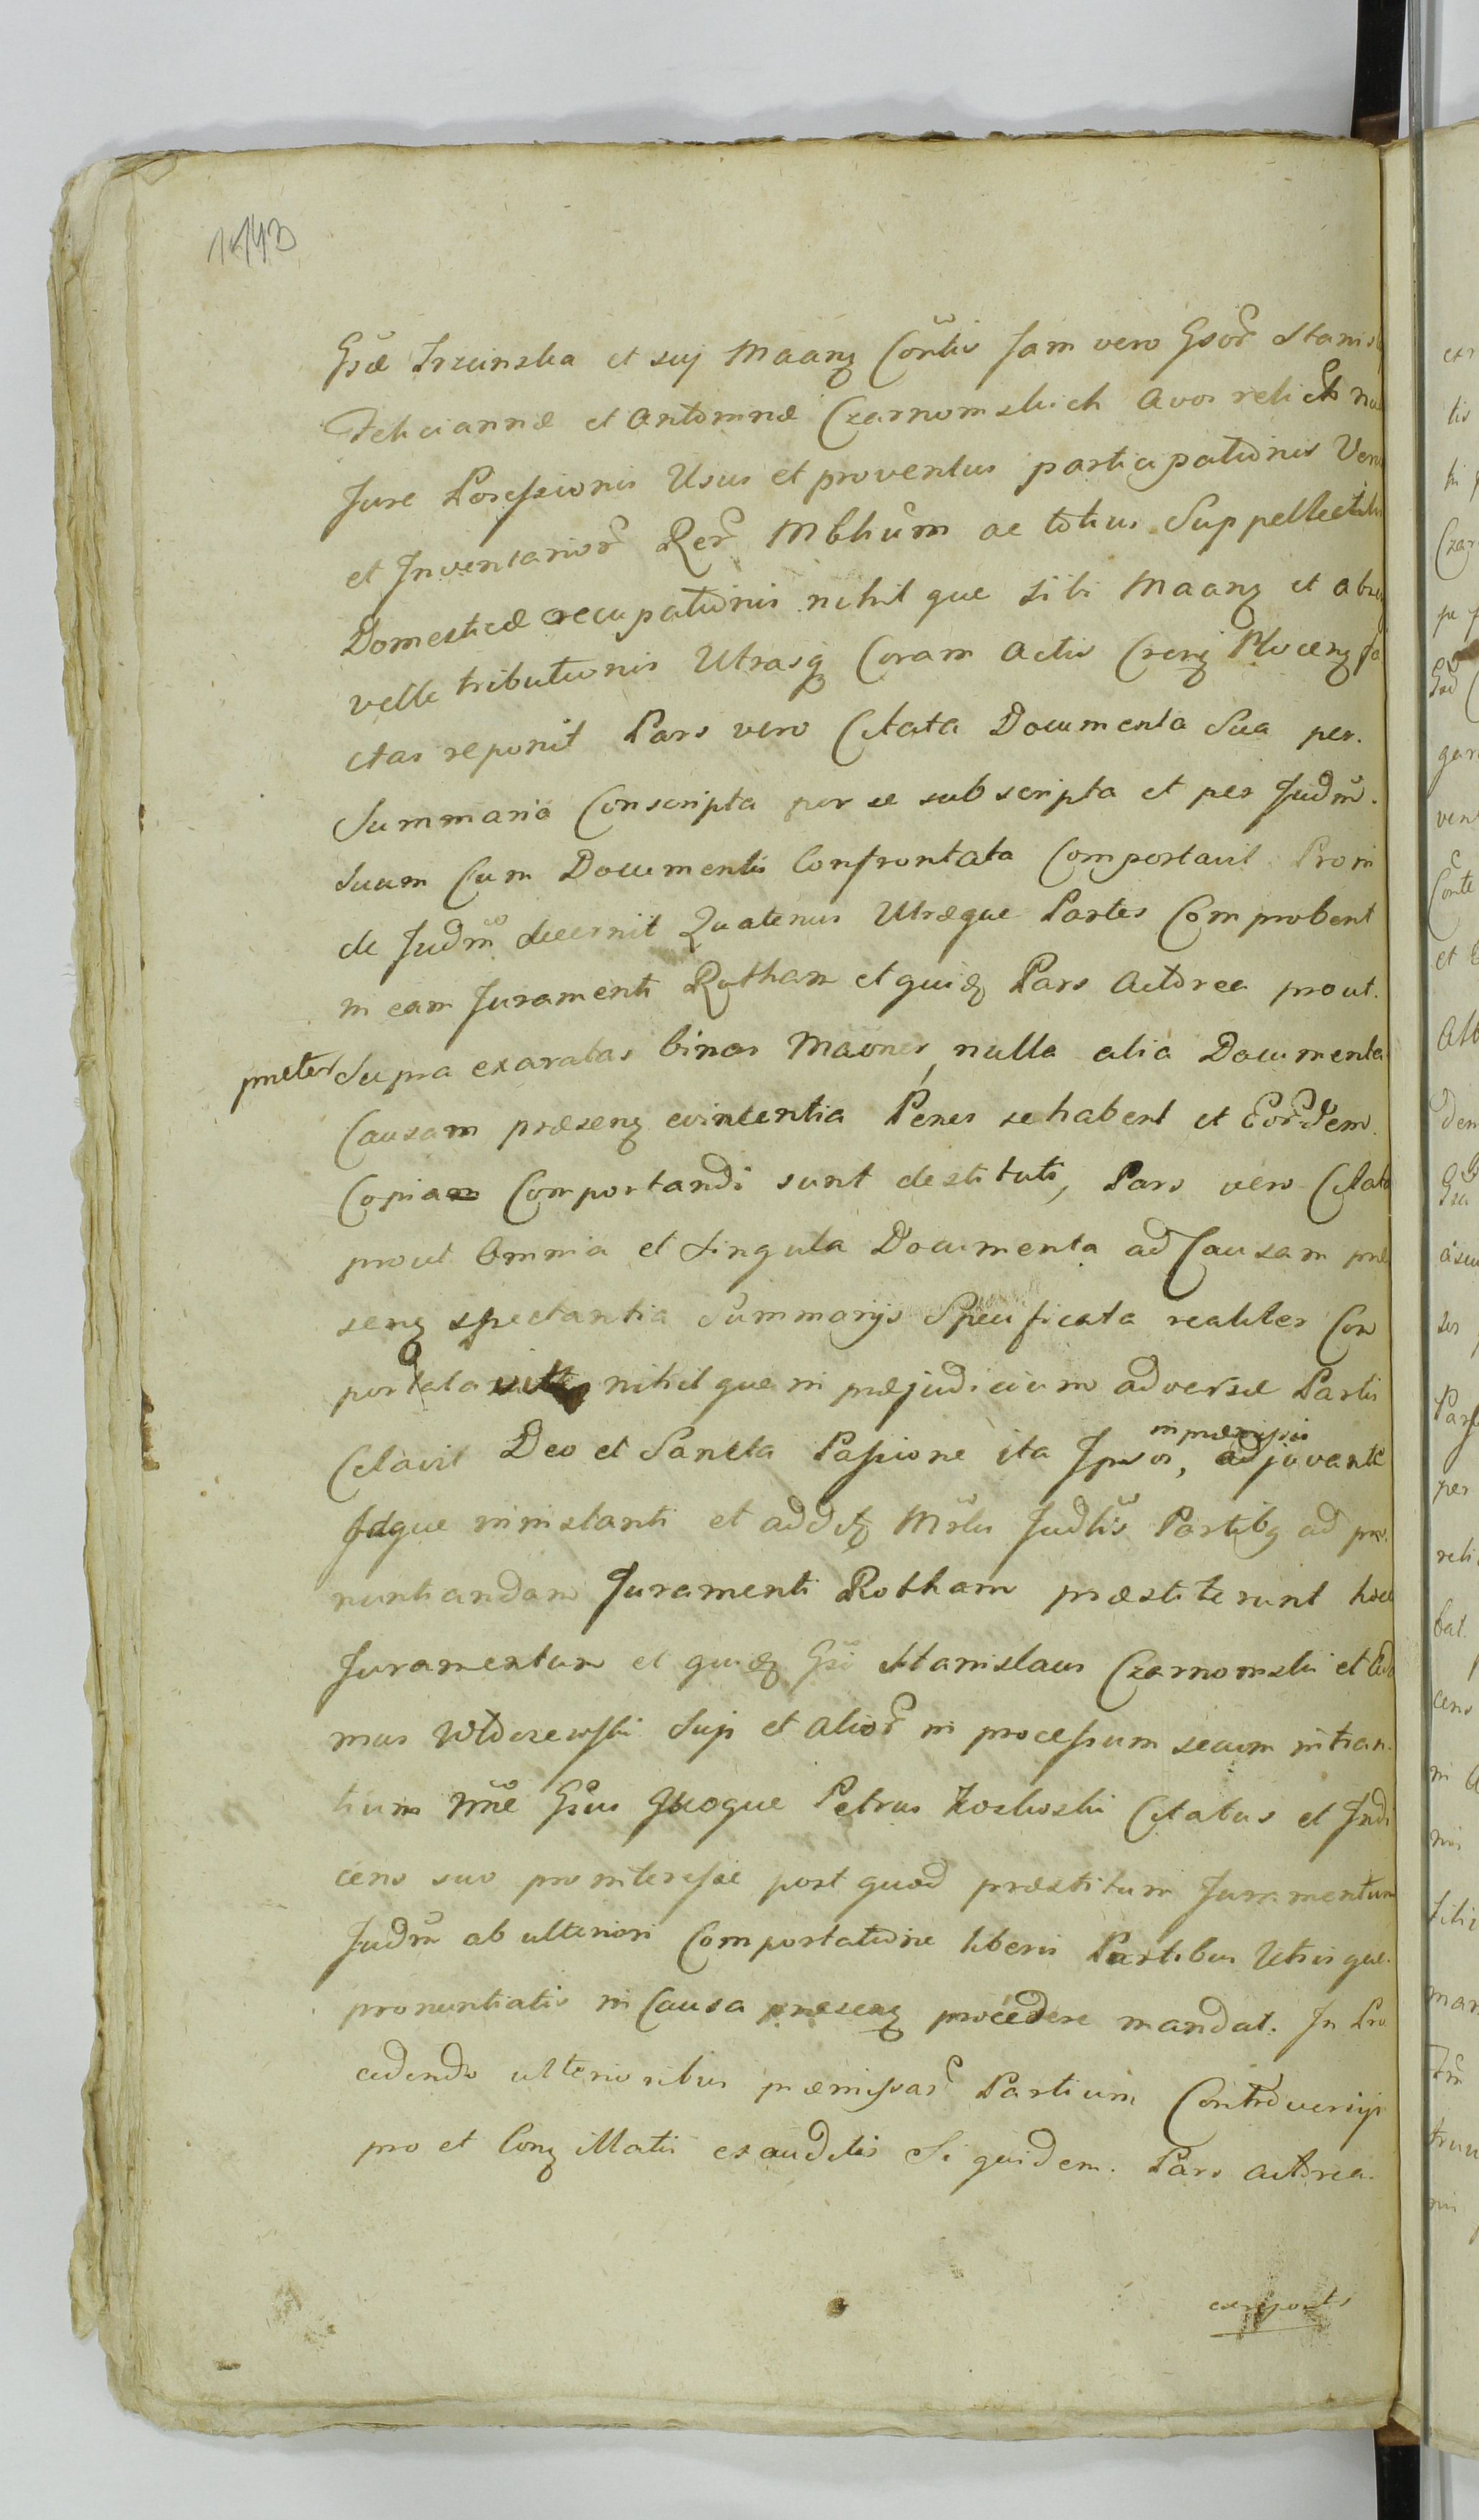 1443
Gsæ Trzcinska et suj Maanz Cortis Jam vero Gsor Stanis
Feliciannæ et Antoninæ Czarnomskich Avos relict
Jure Possessionis Usus et proventus participationis
et Inventarior Rer Mblium ac totius Suppellectilis
Domesticæ occupationis nihil que sibi Maanz et
velle tributionis Utrasq Coram Actis Crenz Plocenz
ctas reponit Pars vero Citata Documenta Sua per.
Summaria Conscripta per se subscripta et per Judm.
Suum Cum Documentis Confrontata Comportavit Proin
de Judm decernit Quatenus Utræque Partes Comprobent
in eam Juramenti Rotham et quidz Pars Actorea prout.
præter Supra exaratas binas Maones, nulla alia Documenta
Causam præsenz evincentia Penes se habent et Eordem
Copiam Comportandi sunt destituti, Pars vero Citata
prout Omnia et Singula Documenta ad Causam præ
senz spectantia Summarijs Specificata realiter Com
portavit nihil que in præjudicium adversæ Partis
Celavit Deo et Sancta Passione ita Ipsos, in præmissis adjuvante
Idque ministanti et addit Mrlu Judlis Partibq ad pro.
nuntiandam Juramenti Rotham præstiterunt hocce
Juramentum et quidz Gsi Stanislaus Czarnomski et
mus Wtoczewski Suji et alior in processum secum intran.
tium nne Gsus Quoque Petrus Koskoski Citatus et Indu
cens suo pro interesse post quod præstitum Juramentum
Judm ab ulteriori Comportatione liberis Partibus Utrisque.
pronuntiatis in Causa præsenz procedere mandat. In Pro
cedendo ulterioribus præmissar Partium Controversijs
pro et Conz illatis exauditis Si quidem. Pars Actorea.